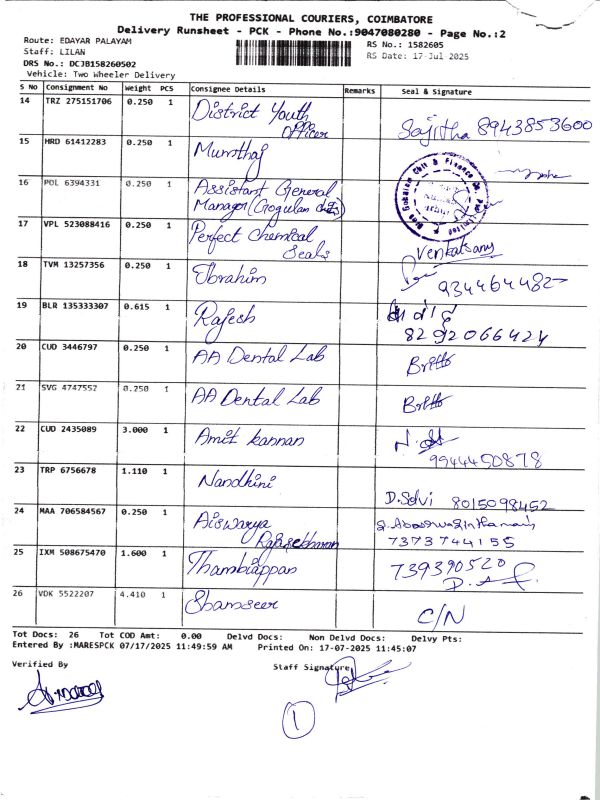 THE PROFESSIONAL COURIERS, COIMBATORE
Delivery Runsheet - PCK - Phone No.:9047080280 - Page No.:2
Route: EDAYAR PALAYAM RS No.: 1582605
Staff: LILAN RS Date: 17-Jul 2025
DRS No.: DCJB158260502
Vehicle: Two Wheeler Delivery
S No Consignment No Weight PCS Consignee Details Remarks Seal & Signature
14 TRZ 275151706 0.250 1 District Youth Officer Sajitha 8943853600
15 HRD 61412283 0.250 1 Mumthaj
16 POL 6394331 0.250 1 Assistant General
Manager (Gogulan chits)
17 VPL 523088416 0.250 1 Perfect Chemical
Seals Venkatsamy
18 TVM 13257356 0.250 1 Ibrahim 934464482
19 BLR 135333307 0.615 1 Rajesh
8292066424
20 CUD 3446797 0.250 1 AA Dental Lab Britto
21 SVG 4747552 0.250 1 AA Dental Lab Britto
22 CUD 2435089 3.000 1 Amit kannan
9944450878
23 TRP 6756678 1.110 1 Nandhini
D.Selvi 8015098452
24 MAA 706584567 0.250 1 Aiswarya
7373744155
25 IXM 508675470 1.600 1 Thambiappan 739390520
26 VDK 5522207 4.410 1 Shamseer C/N
Tot Docs: 26 Tot COD Amt: 0.00 Delvd Docs: Non Delvd Docs: Delvy Pts:
Entered By :MARESPCK 07/17/2025 11:49:59 AM Printed On: 17-07-2025 11:45:07
Verified By Staff Signature
1